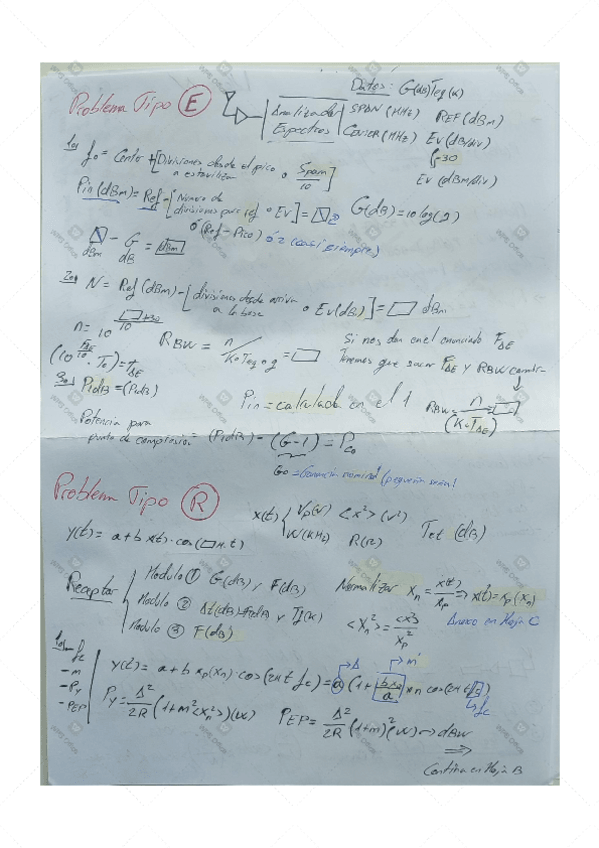 Datos: G(dB) Teq(K)
Problema Tipo E
Analizador Espectros
SPAN (MHz) REF (dBm)
CENTER (MHz) Ev (dB/div)
-30
Ev (dBm/div)
1o) fo = Center + [Divisiones desde el pico a estabilizar · Span/10]
Pin (dBm) = Ref - [Número de divisiones para ref · Ev] = G(dB) = 10 log(g)
ó (Ref - Pico) ó 2 (casi siempre)
dBm - G dB = dBm
2o) N = Ref (dBm) - [divisiones desde arriba a la base · Ev(dB)] = dBm
n = 10
RBW = n/K·Teq·g =
Si nos dan en el enunciado FΔE
Tenemos que sacar FΔE y RBW cambia
(10 · To) = TΔE
RBW = n/(K·TΔE) =
3o) P1dB = (P1dB)
Pin = calculada en el 1
Potencia para punto de compresión = (P1dB) - (G-1) = Pco
Go = Ganancia nominal (pequeña señal)
Problema Tipo R
x(t) { Vp(v) <x²>(v²)
W(KHz) R(Ω) Tot (dB)
y(t) = a + b x(t) · cos(□π.t)
Receptor
Modulo ① G(dB) y F(dB)
Modulo ② y Tf(K)
Modulo ③ F(dB)
Normalizar Xn = x(t)/xp => x(t) = xp(xn)
<Xn²> = <x²>/xp² Anexo en Hoja C
1o)
- fc
- m
- Py
- PEP
y(t) = a + b xp(xn) · cos(2π t fc) = a (1 + b xp/a xn cos(2π t fc)
Py = A²/2R (1+m²<xn²>)(w) PEP = A²/2R (1+m)² (w) -> dBW
Continua en Hoja B